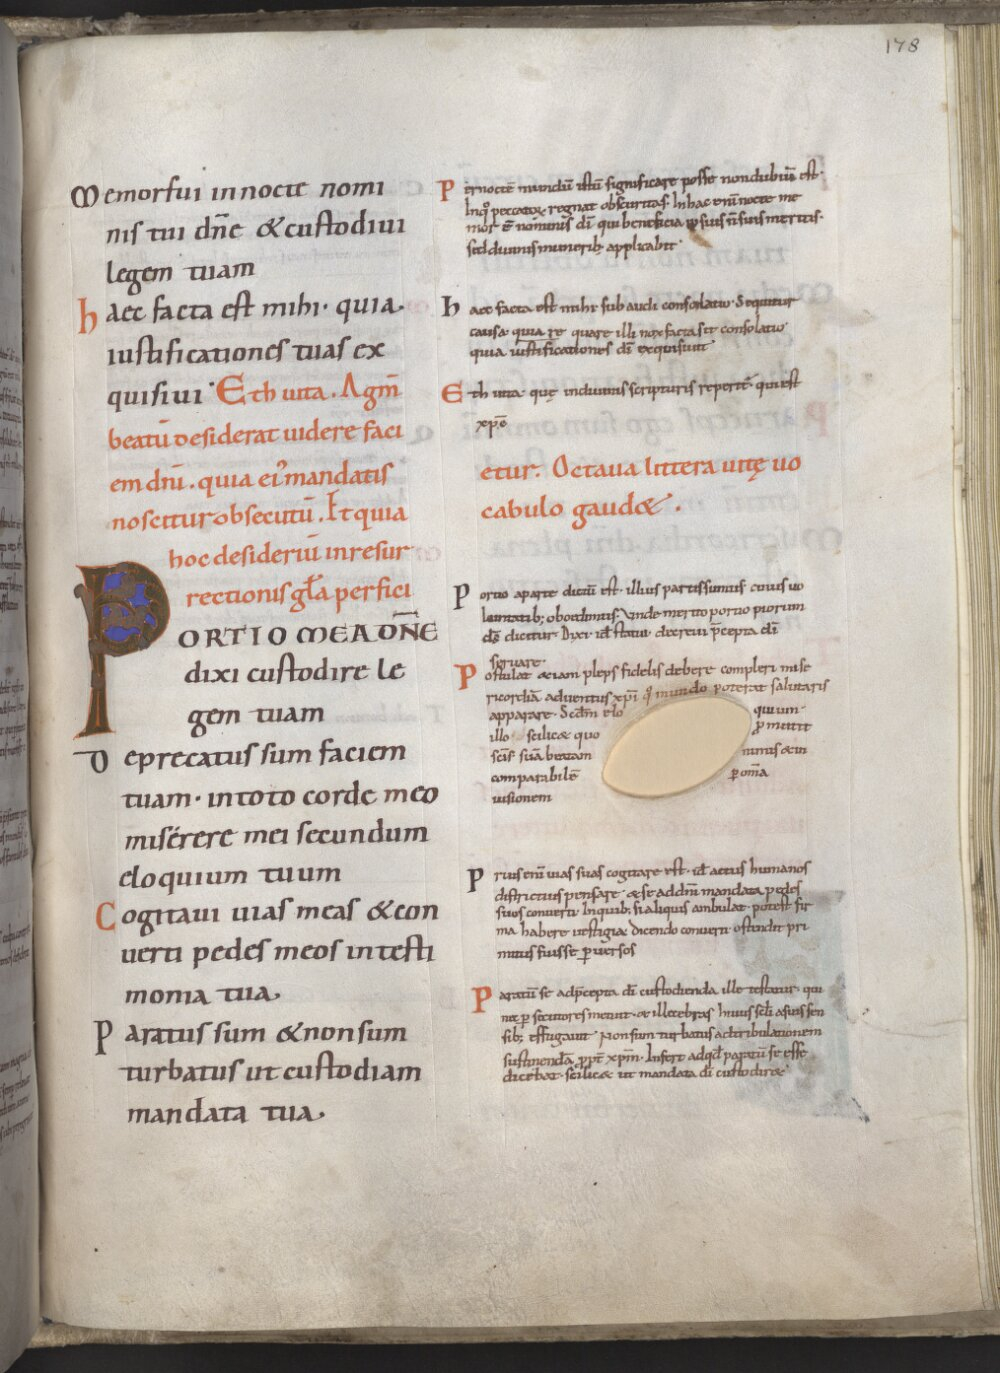 178
Memor fui in nocte nomi
nis tui dn̄e &custodiui
legem tuam
haec facta est mihi· quia·
iustificationes tuas ex
quisiui· Eth uita. Agm̄
beatū desiderat uidere faci
em dn̄i. quia ei' mandatis
noscitur obsecutū. Et quia
hoc desideriū in resur
rectionis gl̄a perfici
PORTIO MEA DN̄E
dixi custodire le
gem tuam
Deprecatus sum faciem
tuam· in toto corde meo
miserere mei secundum
eloquium tuum
Cogitaui uias meas &con
uerti pedes meos in testi
monia tua.
Paratus sum &non sum
turbatus ut custodiam
mandata tua.
Per noctē mundū istū significare posse non dubiū est·
In q° peccatox regnat obscuritas· In hac enī nocte me
mor ē nominis dī qui beneficia ipsius n̄ suis meritis·
sed diuinis munerib; applicabit·
haec facta est mihi sub audi consolatio· Sequitur
causa· quia re quare illi nox facta sit consolatio·
quia iustificationes dī exquisiuit
Eth uita· quę in diuinis scripturis reperit̄ qui est
xp̄c
etur. Octaua littera uitę uo
cabulo gaud&.
Portio a parte dictū est· illius partis sumus· cuius uo
luntatib; oboedimus· Unde merito portio piorum
dс̄ dicitur· Dixi· id̄ statui· decreui p̄cepta dī
seruare·
Postulat &iam plebs fidelis debere compleri mise
ricordiā aduentus xpī q̇ mundo poterat salutaris
apparare· Scdm̄ elo quium·
illo· scilic& quo p mittit
sc̄is suā beatam nimis & in
comparabilē p om̄a
uisionem
Prius enī uias suas cogitare est· id̄ actus humanos
districtius pensare· & se ad dn̄i mandata pedes
suos conuerti· In quib; si aliquis ambulat· potest fir
ma habere uestigia· dicendo conuerti· ostendit pri
mitus fuisse puersos
Paratū se ad p̄cepta dī custodienda ille testatur· qui
nec p secutores metuit· & illecebras huius scl̄i a suis sen
sib; effugauit· Non sum turbatus ad tribulationem
sustinendā ppt̄ xpm̄· Infert ad qd̄ paratū se esse
dicebat· scilic& ut mandata dī custodir&·